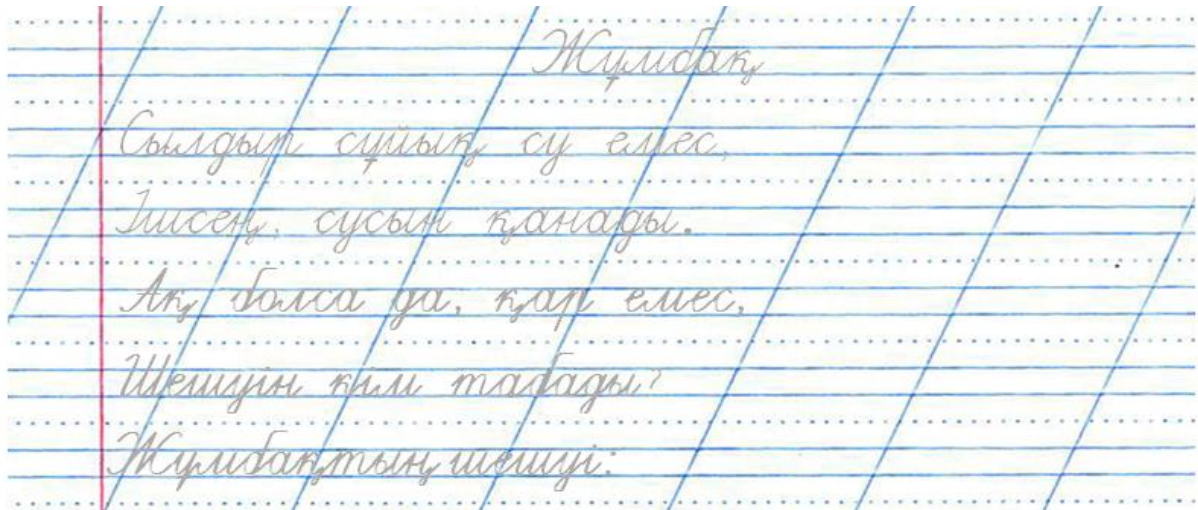 Жұмбақ
Сылдыр сұйық су емес,
Ішсең, сусын қанады.
Ақ болса да, қар емес,
Шешуін кім табады?
Жұмбақтың шешуі: